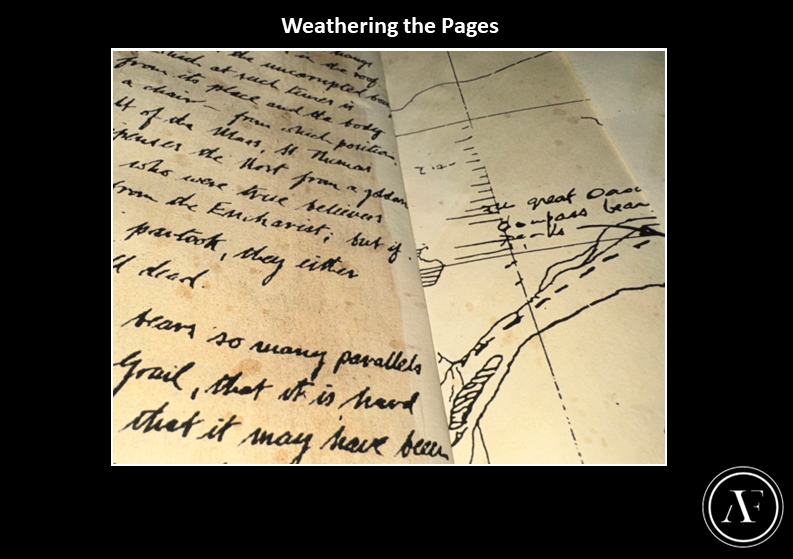 Weathering the Pages
in the roof
the uncorrupted
which at such times is
from its place and the body
a chair - from which position
of the Mass, St Thomas
the Host from a golden
who were true believers
from the Eucharist; but if
partook, they either
dead.
bears so many parallels
Grail, that it is hard
that it may have been
the great
compass
AF